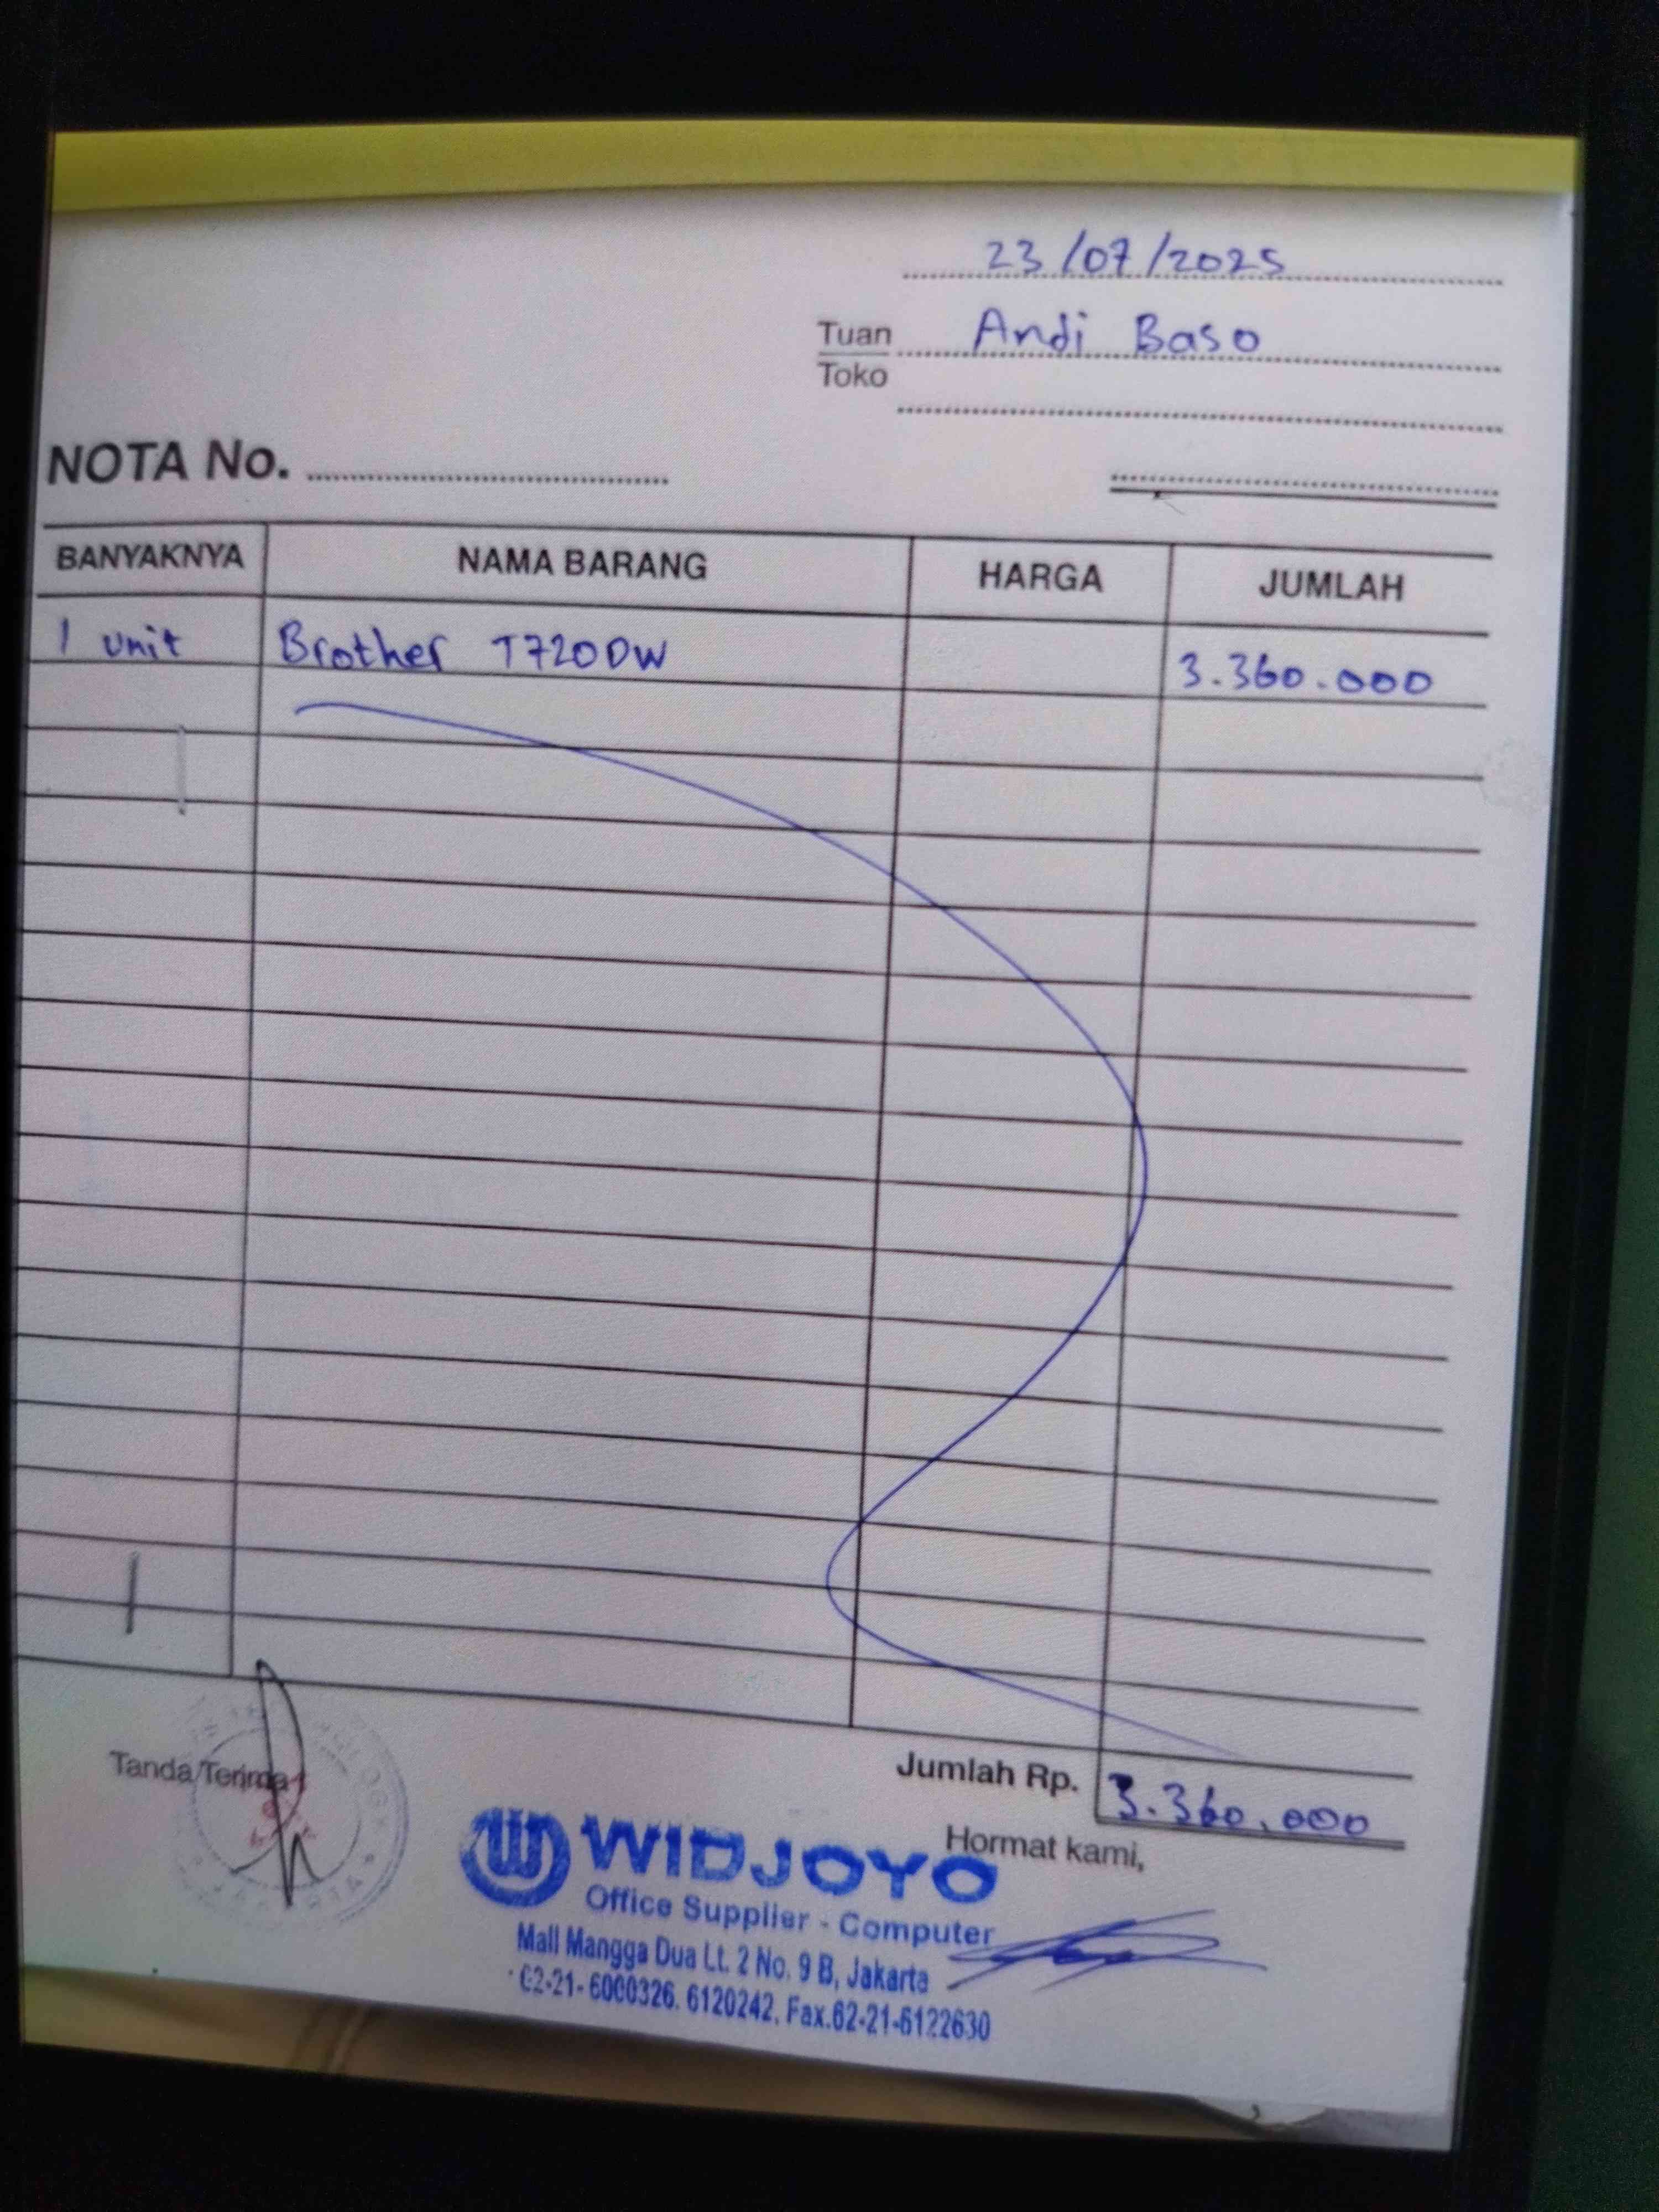 23/07/2025
Tuan Andi Baso
Toko
NOTA No.
BANYAKNYA NAMA BARANG HARGA JUMLAH
1 unit Brother T720DW 3.360.000
Jumlah Rp. 3.360.000
Tanda Terima
Hormat kami,
WIDJOYO
Office Supplier - Computer
Mall Mangga Dua Lt. 2 No. 9 B, Jakarta
62-21-6000326. 6120242, Fax.62-21-6122630